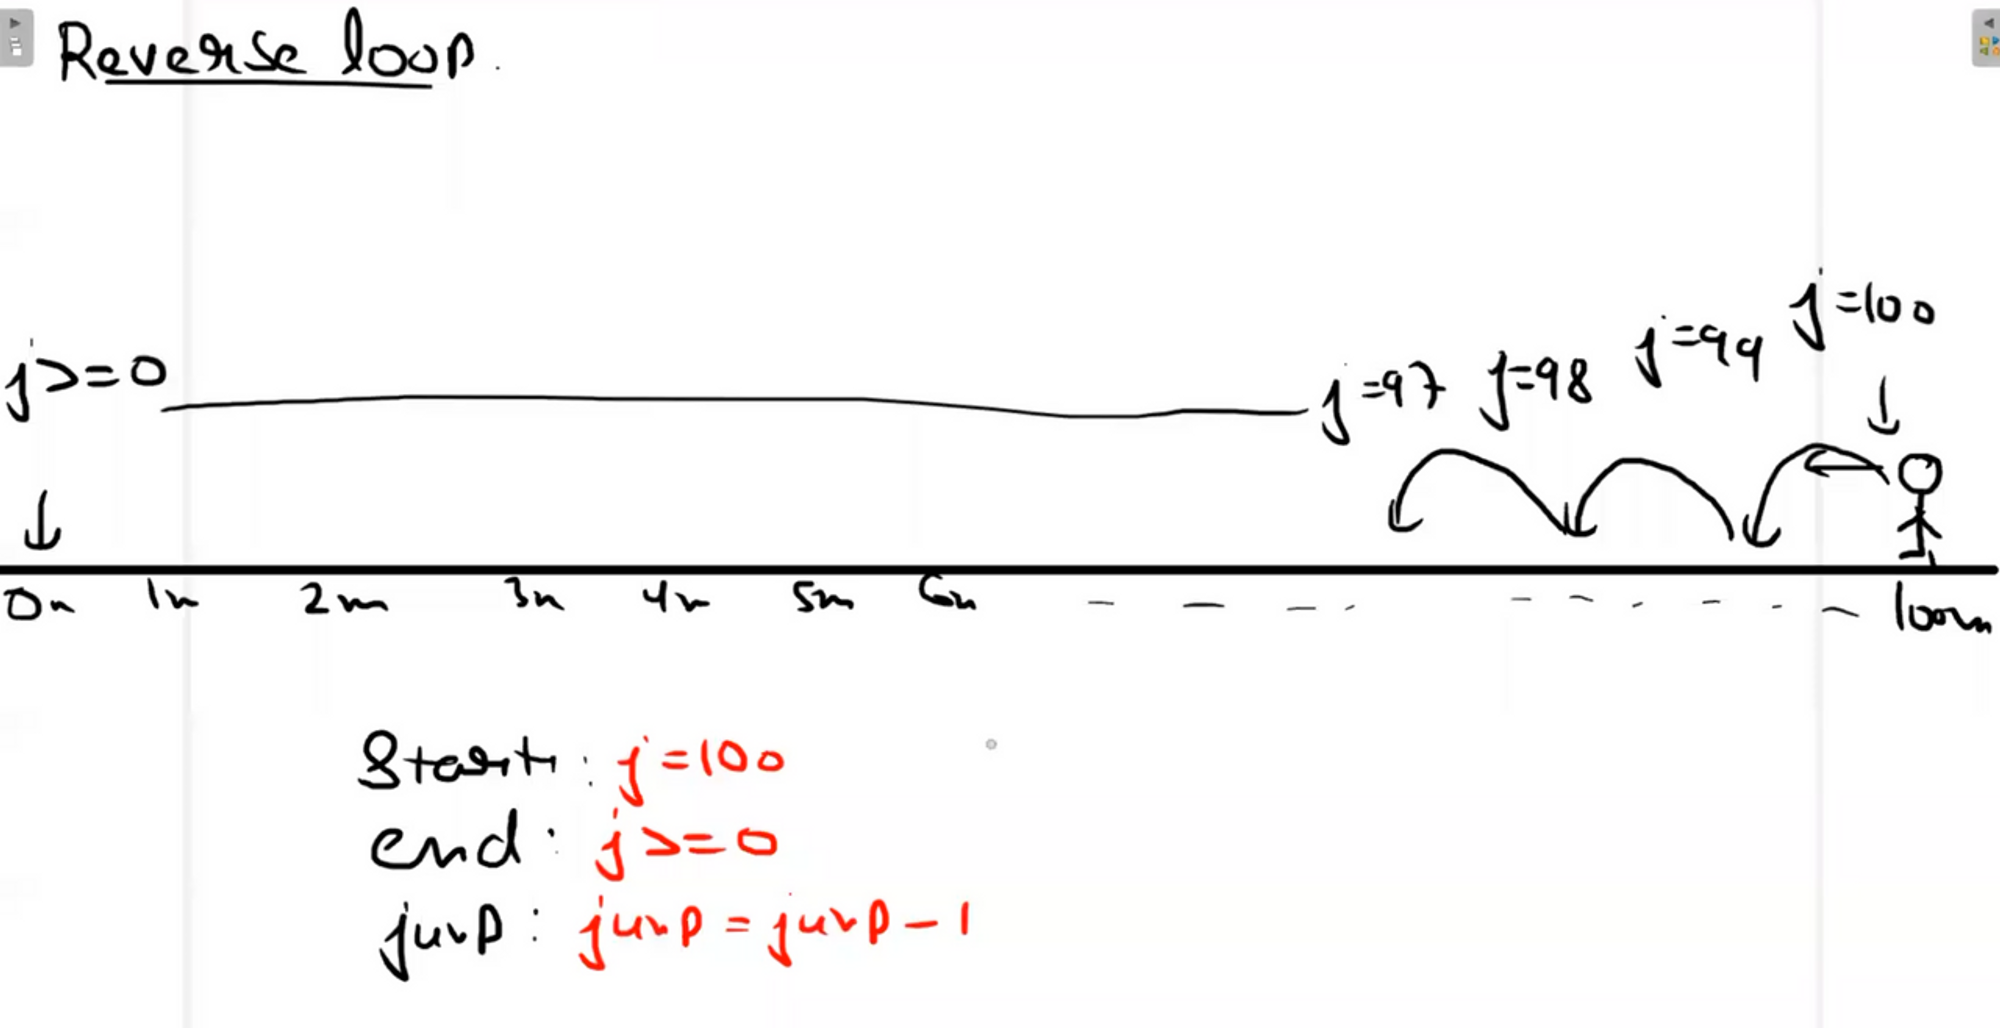 Reverse loop.
j=100
j=99
j>=0 j=97 j=98
0m 1m 2m 3m 4m 5m 6m 100m
Start: j=100
end: j>=0
jump: jump = jump - 1